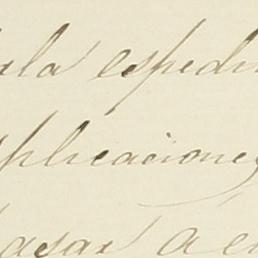 ala espedi
plicaciones
asar a e